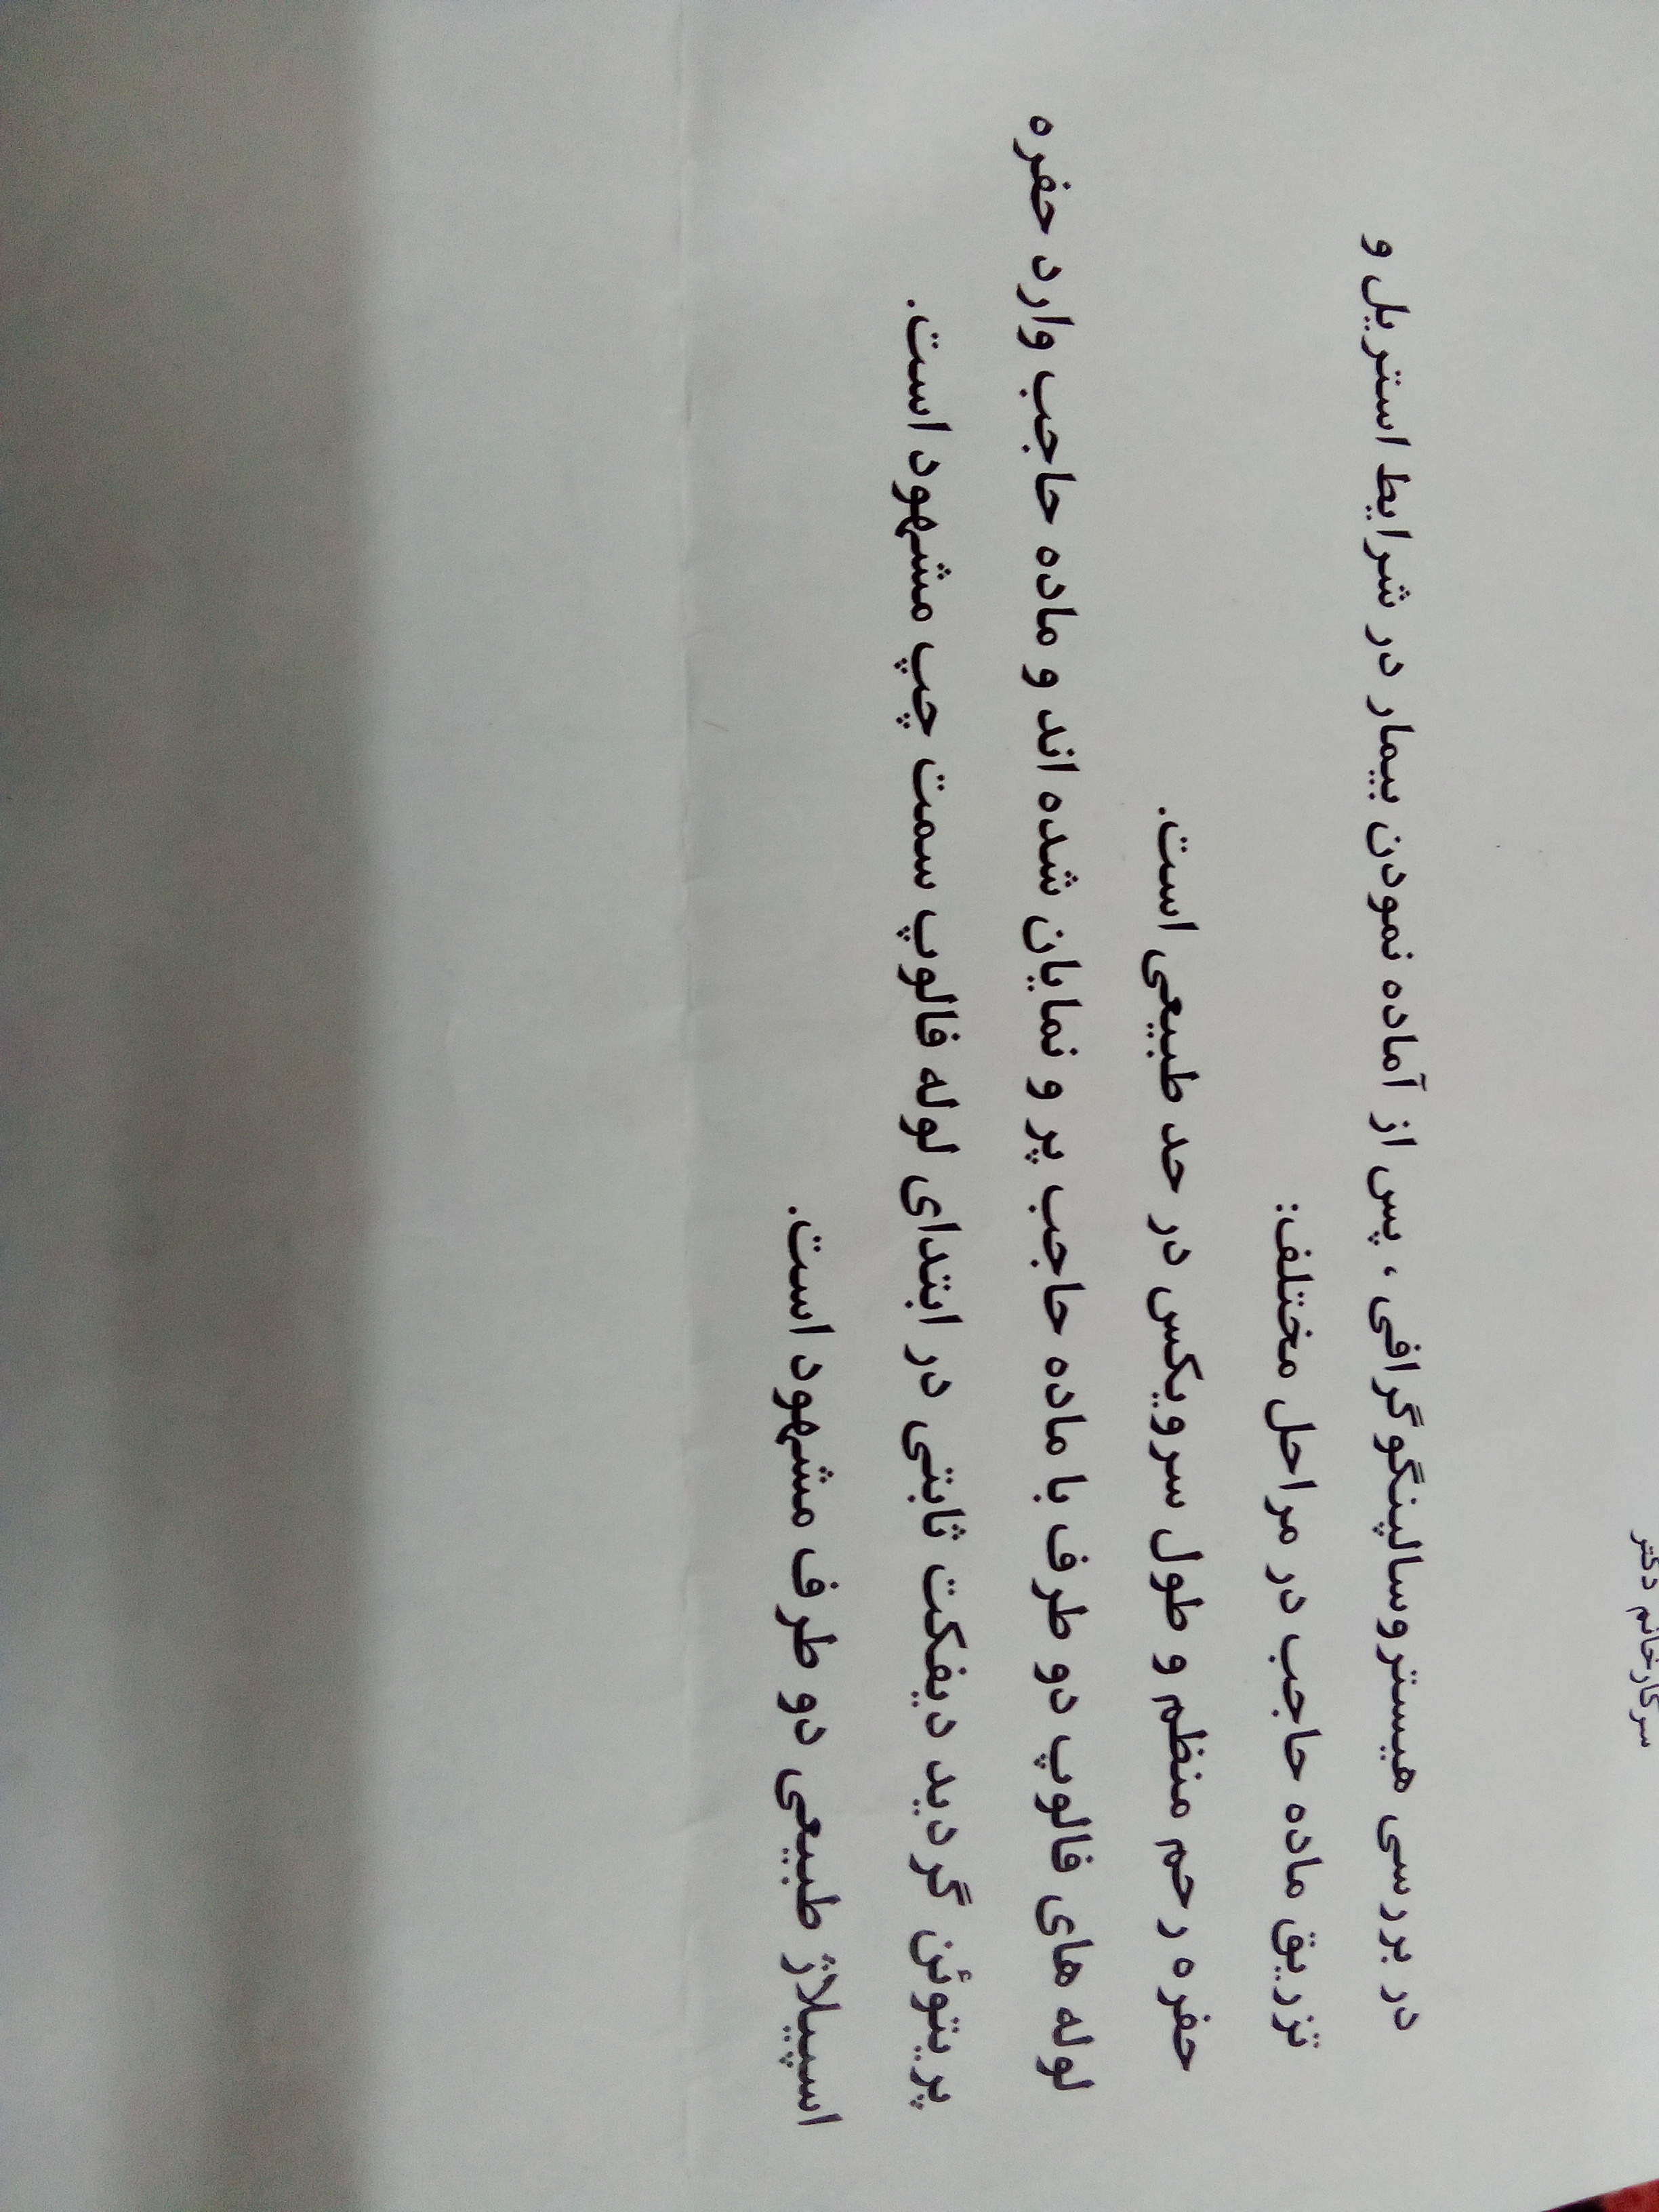 سرکار خانم دکتر
در بررسی هیستروسالپنگوگرافی ، پس از آماده نمودن بیمار در شرایط استریل و
تزریق ماده حاجب در مراحل مختلف:
حفره رحم منظم و طول سرویکس در حد طبیعی است.
لوله های فالوپ دو طرف با ماده حاجب پر و نمایان شده اند و ماده حاجب وارد حفره
پریتوئن گردید دیفکت ثابتی در ابتدای لوله فالوپ سمت چپ مشهود است.
اسپیلاژ طبیعی دو طرف مشهود است.